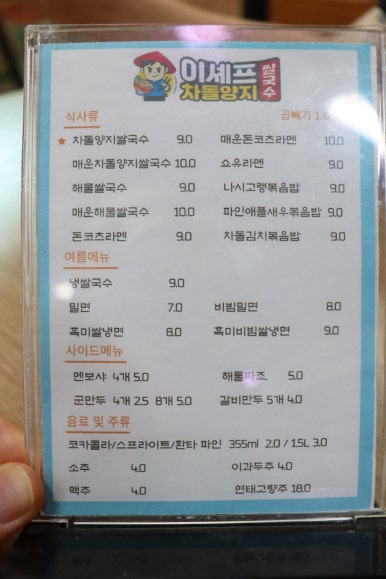 이셰프
차돌양지
쌀국수
식사류 곱빼기 1.0
★ 차돌양지쌀국수 9.0 매운돈코츠라멘 10.0
매운차돌양지쌀국수 10.0 쇼유라멘 9.0
해물쌀국수 9.0 나시고랭볶음밥 9.0
매운해물쌀국수 10.0 파인애플새우볶음밥 9.0
돈코츠라멘 9.0 차돌김치볶음밥 9.0
여름메뉴
냉쌀국수 9.0
밀면 7.0 비빔밀면 8.0
흑미쌀냉면 8.0 흑미비빔쌀냉면 9.0
사이드메뉴
멘보샤 4개 5.0 해물짜조. 5.0
군만두 4개 2.5 8개 5.0 갈비만두 5개 4.0
음료 및 주류
코카콜라/스프라이트/환타 파인 355ml 2.0 / 1.5L 3.0
소주 4.0 이과두주 4.0
맥주 4.0 연태고량주 18.0